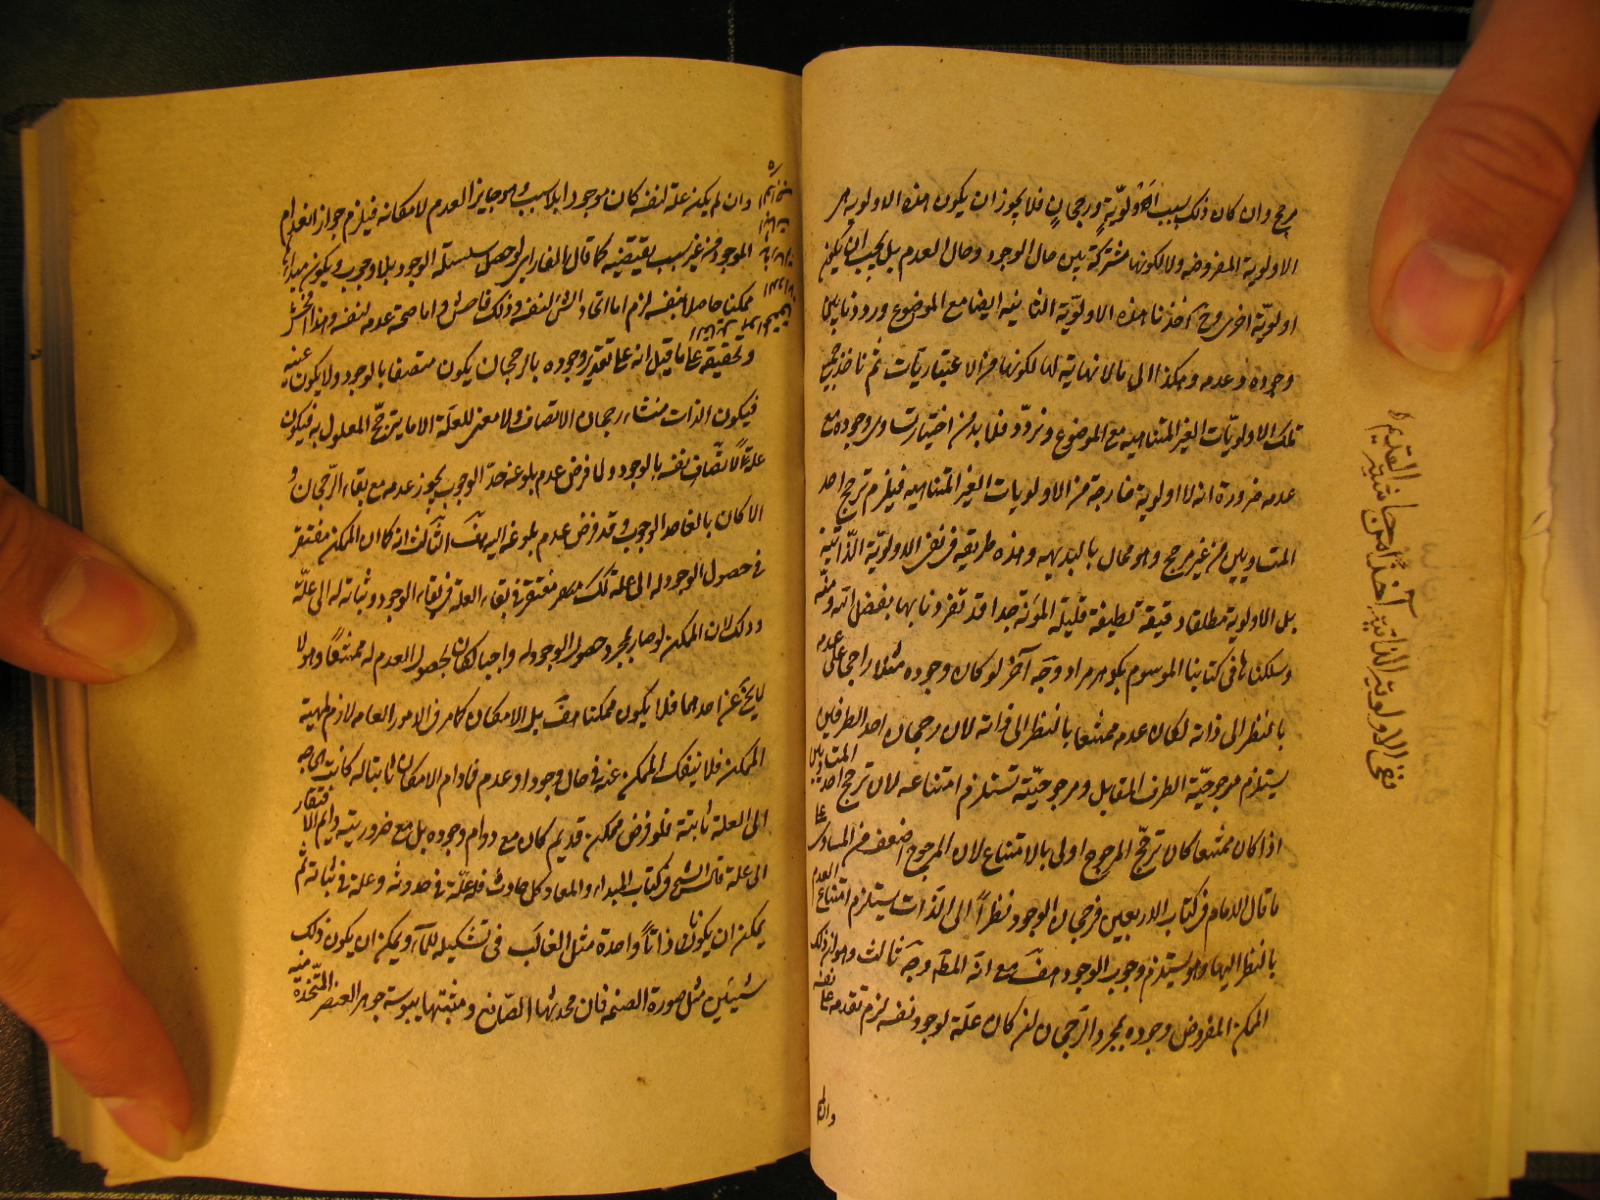 مرجح وان كان ذلك بسبب اولويّة ورجحان فلا يجوز ان يكون هذه الاولوية هى
الاولوية المفروضه والا لكونها مشتركة بين حال الوجود وحال العدم بل يجب ان يكون
اولويّة اخرى وح اخذنا هذه الاولويّة الثانيه ايضا مع الموضوع ورددنا بين
وجوده وعدمه وهكذا الى مالانهاية لها لكونها من الاعتباريات ثم ناخذ جميع
تلك الاولويّات الغير المتناهيه مع الموضوع ونردّد فلا بد من اختيار تساوى وجوده مع
عدمه ضرورة انه لا اولوية خارجة من الاولويات الغير المتناهيه فيلزم ترجح احد
المتساويين من غير مرجح وهو محال بالبديهه وهذه طريقه فى نفى الاولويّة الذّاتية
بل الاولوية مطلقا دقيقة لطيفة قليلة المؤنة جدا قد تفردنا بها بفضل الله ومنّه
وسلكناها فى كتابنا الموسوم بكوهر مراد وجه آخر لو كان وجوده مثلا راجحا على عدمه
بالنظر الى ذاته لكان عدمه ممتنعا بالنظر الى ذاته لان رجحان احد الطرفين
يستلزم مرجوحيّة الطرف المقابل ومرجوحيّته تستلزم امتناعه لان ترجح احد المتساويين
اذا كان ممتنعا كان ترجّح المرجوح اولى بالامتناع لان المرجوح اضعف من المساوى على
ما قال الامام فى كتاب الاربعين فرجحان الوجود نظراً الى الذات يستلزم امتناع العدم
بالنظر اليها وهو يستلزم وجوب الوجود هف مع انه المط وجه ثالث وهو ان ذلك
الممكن المفروض وجوده بمجرد الرّجحان ان كان علّة لوجود نفسه لزم تقدمه على نفسه
نفى الاولوية الذاتية آخذاً من حاشية القديم
وان لم يكن علة لنفسه كان موجودا بلا سبب وهو جايز العدم لامكانه فيلزم جواز انعدام
الموجود من غير سبب يقتضيه كما قال الفارابى لو حصل سلسلة الوجود بلا وجوب ويكون مبدأها
ممكنا حاصلا بنفسه لزم اما ايجاد الشئ لنفسه وذلك فاحش واما صحة عدمه لنفسه وهذا افحش
وتحقيقه على ما قيل انه على تقدير وجوده بالرجحان يكون متصفا بالوجود ولا يكون عينه
فيكون الذات منشاء رجحان الاتصاف ولا معنى للعلّة الا ما يترجّح المعلول به فيكون
علة لاتّصاف نفسه بالوجود ولما فرض عدم بلوغه حدّ الوجوب يجوز عدمه مع بقاء الرّجحان و
الا كان بالغا حد الوجوب وقد فرض عدم بلوغه اليه هف الثالث انه كما ان الممكن مفتقر
فى حصول الوجود له الى علة كذلك هو مفتقر فى بقاء العلة فى بقاء الوجود وثباته له الى علّة
وذلك لان الممكن لو صار بمجرد حصول الوجود له واجبا لكان لحصول العدم له ممتنعاً وهو لا
يخ عن احدهما فلا يكون ممكنا هف بل الامكان كما مر فى الامور العامه لازم لمهية
الممكن فلا ينفك الممكن عنه فى حال وجود او عدم فمادام الامكان ثابتا له كانت الحاجه
الى العلة ثابتة فلو فرض ممكن قديم كان مع دوام وجوده بل مع ضروريته دايم الافتقار
الى علة قال الشيخ فى كتاب المبداء والمعاد كل حادث فله علّة فى حدوثه وعلة فى ثباته ثم
يمكن ان يكونا ذاتاً واحدة مثل القالب فى تشكيله للماء ويمكن ان يكون ذلك
شيئين مثل صورة الصنم فان محدثها الصّانع ومثبتها يبوسة جوهر العنصر المتّخذة منه